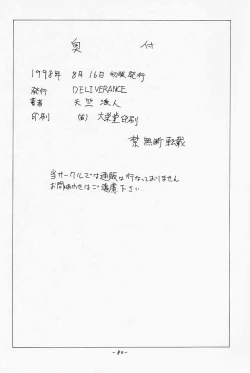 奥付
1998年 8月16日 初版発行
発行 DELIVERANCE
著者 天竺浪人
印刷 (有) 大栄堂印刷
禁無断転載
当サークルでは通販は行なっておりません
お問合わせはご遠慮下さい.
-80-